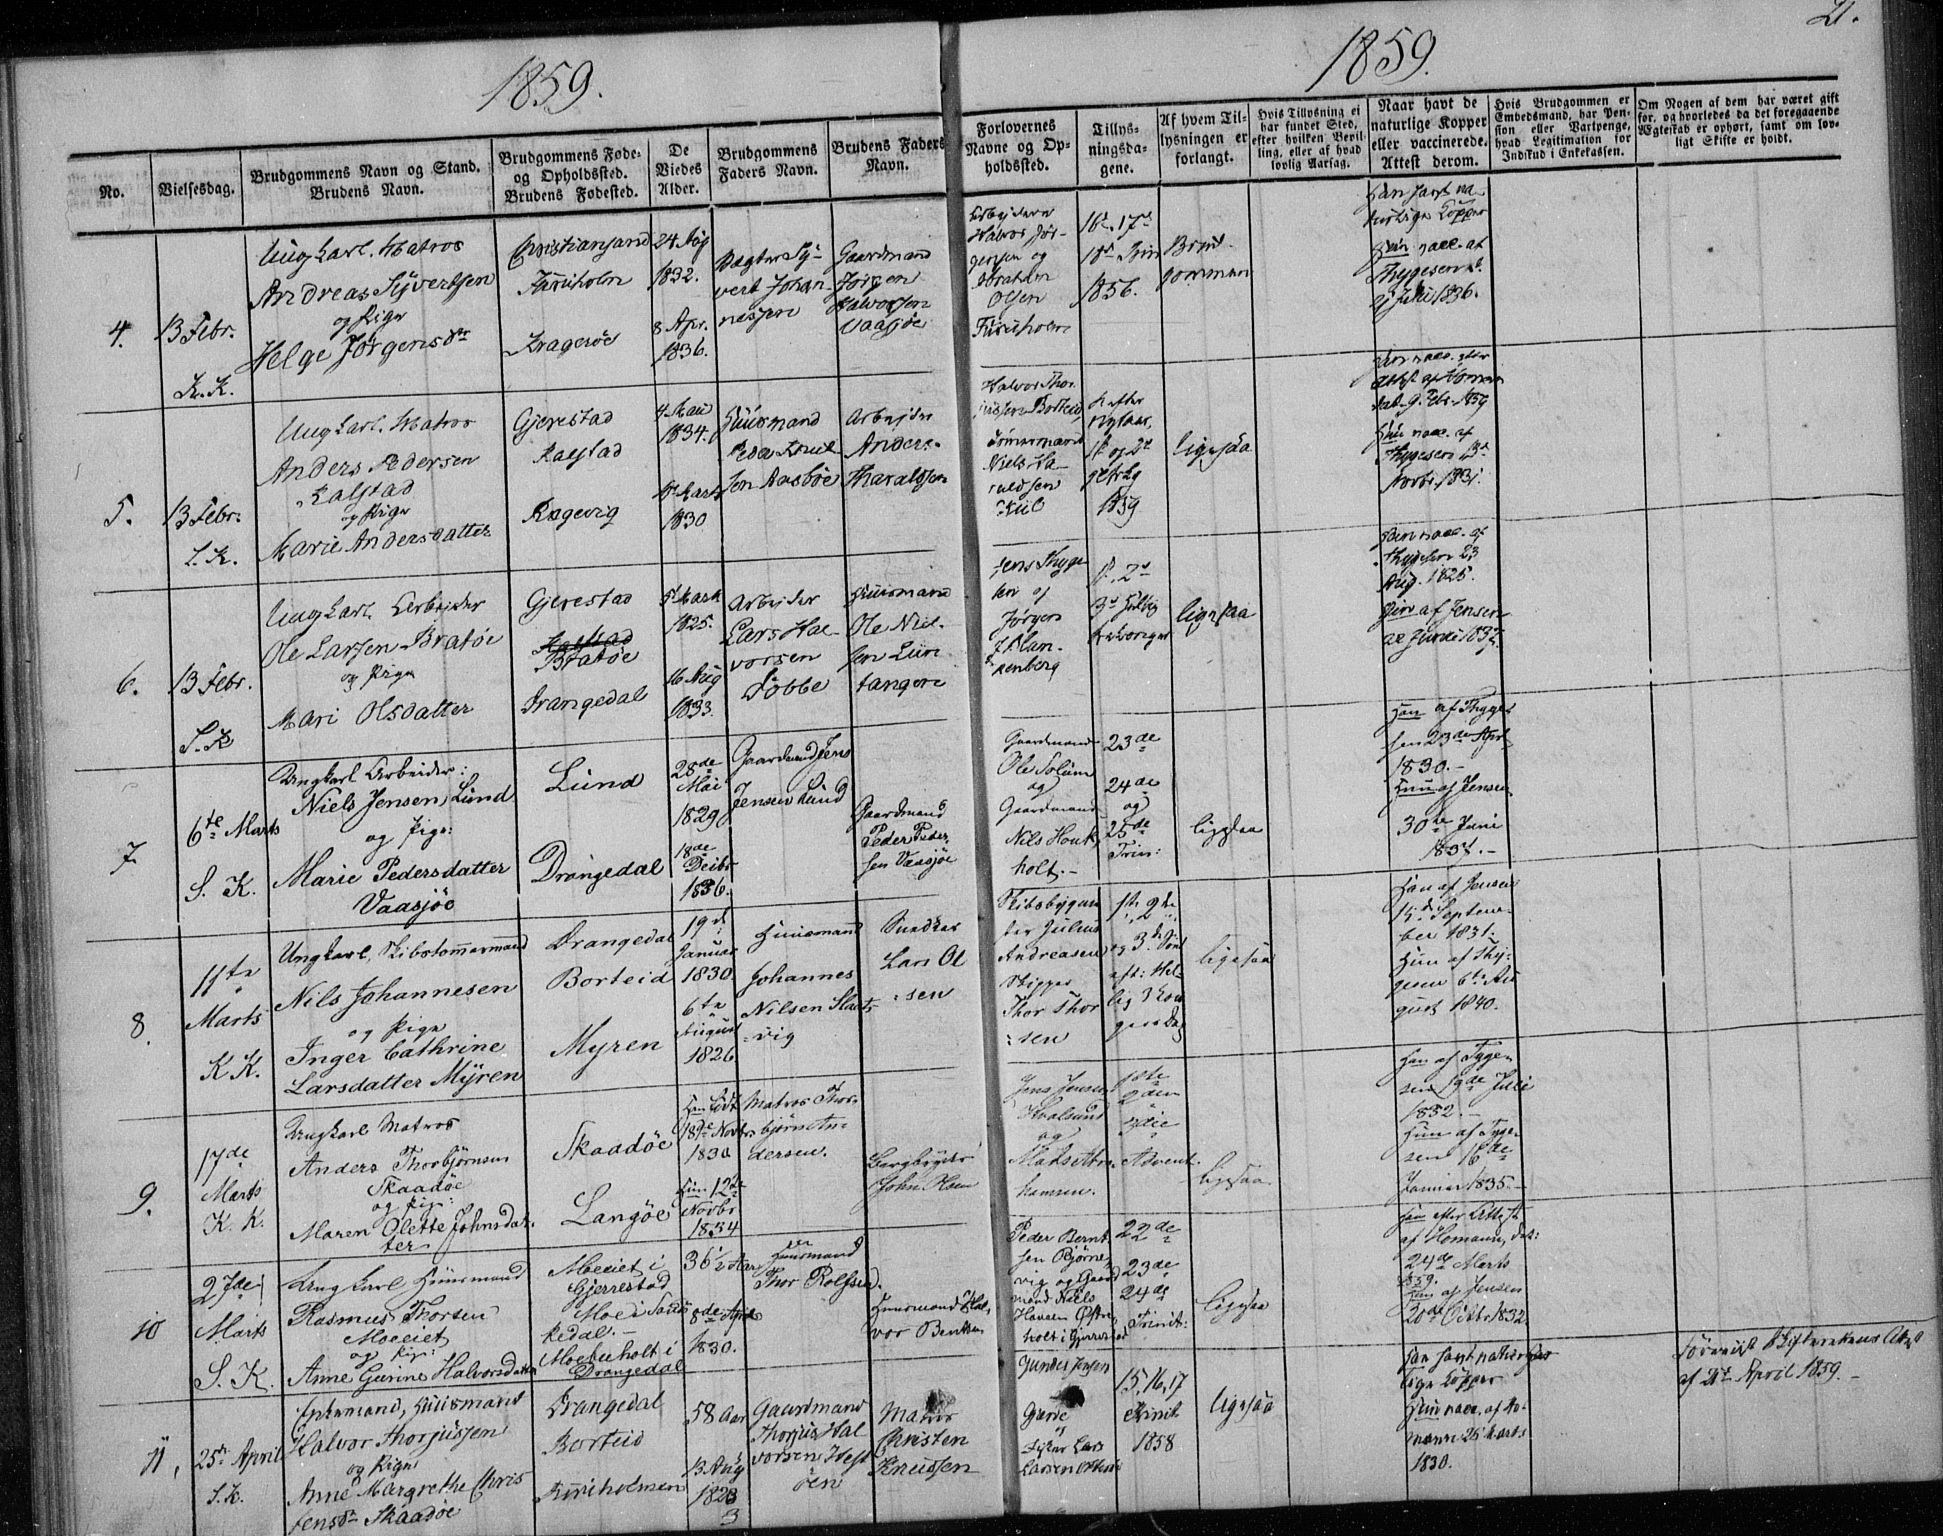 1859.
1859.
21.
No.
Vielsesdag.
Brudgommens Navn og Stand.
Brudens Navn.
Brudgommens Føde-
og Opholdssted.
Brudens Fødested.
De
Viedes
Alder.
Brudgommens
Faders Navn.
Brudens Faders
Navn.
Forlovernes
Navne og Op-
holdssted.
Tillys-
ningsda-
gene.
Af hvem Til-
lysningen er
forlangt.
Hvis Tillysning ei
har fundet Sted,
efter hvilken Bevil-
ling, eller af hvad
lovlig Aarsag.
Naar havt de
naturlige Kopper
eller vaccinerede.
Attest derom.
Hvis Brudgommen er
Embedsmand, har Pen-
sion eller Vartpenge,
hvad Legitimation for
Indskud i Enkekassen.
Om Nogen af dem har været gift
for, og hvorledes da det foregaaende
Ægteskab er ophørt, samt om lov-
ligt Skifte er holdt.
4.
13 Febr.
K. K.
Ungkarl. Matros
Andreas Syvertsen
og Pige
Helge Jørgensdtr
Christiansand
Furuholm
Kragerøe
24 Aug
1832.
8 Apr.
1836.
Vægter Sy-
vert Johan-
nessen
Gaardmand
Jørgen
Halvorsen
Vaasjøe
Arbeidere
Halvor Jør-
gensen og
Abraham
Olsen
Furuholm
16de 17de
18de Trin
1856.
Brud-
gommen
Han havt na-
turlige Kopper
Hun vacc. af
Thygesen d.
Juli 1836.
5.
13 Febr.
S. K.
Ungkarl. Matros
Anders Pedersen
Kalstad
og Pige
Marie Andersdatter
Gjerestad
Kalstad
Rægevig
4 Mai
1834.
Marts
1830
Huusmand
Peder Knud
sen Aasbøe
Arbeider
Anders
Tharaldsen
Halvor Thor
jussen Borteid
Tømmermand
Niels Ha-
raldsen
Kiil
1 efter
Nytaar,
1 og 2
1859
ligesaa
Han vacc. efter
Attest af Homan
dat. 9 Febr. 1859
Hun vacc. af
Thygesen 13de
Novbr. 1831.
6.
13 Febr.
S. K
Ungkarl. Arbeider
Ole Larsen Bratøe
og Pige
Mari Olsdatter
Gjerestad
Bratøe
Drangedal
5 Mart
1825.
16 Aug
1833.
Arbeider
Lars Hal-
vorsen
Døbbe
Huusmand
Ole Niel-
sen Lun
tangen
Jens Thyge
sen og
Jørgen
J. Blan-
kenberg
1, 2
3
ligesaa
Han vacc. af
Thygesen 23
Aug. 1825.
Hun af Jensen
7.
6te Marts
S. K.
Ungkarl Arbeider:
Niels Jensen, Lund
og Pige:
Marie Pedersdatter
Vaasjöe
Lund
Drangedal
28de
Mai
1829
18de
Decbr
1836.
Gaardmand Jens
Jensen Lund
Gaardmand
Peder Peder-
sen Vaasjöe
Gaardmand
Ole Solum
og
Gaardmand
Nils Houk-
holt.-
23de
24de
og
25de
Trin:
ligesaa
Han af Thyge-
sen 23de Apr
1830.-
Hun af Jensen
30te Juni
1837.-
8.
11te
Marts
K K.
Ungkarl, Skibstømmermand
Nils Johannesen
og Pige
Inger Cathrine
Larsdatter Myren
Drangedal
Borteid
Myren
19de
Januar
1830.
6te
August
1826
Huusmand
Johannes
Nilsen Slaats-
vig
Snedker
Lars Ol
sen
Skibsbygme
ster Julius
Andreasen
Skipper
Thor Thor
sen
1te, 2de
og 3de Sønd
aft: Hel-
lig 3 Kon
gersdag
ligesaa
Han af Jensen
15de Septem-
ber 1831.-
Hun af Thy-
gesen 6te Au
gust 1840.
9.
17de
Marts
K. K.
Ungkarl Matros
Anders Thorbjørnsen
Skaadøe
og Pige:
Maren Olette Johnsdat-
ter
Skaadøe
Langøe
Han født
18de Novbr
1830
Hun 12te
Novbr
1834
Matros Thor-
bjørn An-
dersen.
Bergbryder
John Olsen
Jens Jensen
Hvalsund
og
Mads Abra-
hamsen.
1ste
2den
3die
Advent.
ligesaa
Han af Tyge-
sen 19de Juli
1832.-
Hun af Tyge-
sen 16de
Januar 1835.-
10
27de
Marts
S. K.
Ungkarl Huusmand
Rasmus Thorsen
Moeiet
og Pige:
Anne Gurine Halvorsdatter
Moeiet i
Gjerrestad
Moe i Sande
kedal.-
Moeholt i
Drangedal
36½ Aar
8de April
1830.
Huusmand
Thor Rolfsen.
Huusmand Hal-
vor Bentsen
Peder Bernt
sen Bjørne-
vig og Gaard
mand Niels
Hansen Østre
holt i Gjerrestad
22de
23de
24de
Trinit:
ligesaa
Han efter Attest
af Homann, dat:
24de Marts
1859.
Hun af Jensen
20de Octbr. 1832.
11,
25de April
S. K.
Enkemand, Huusmand
Halvor Thorjussen
og Pige
Anne Margrethe Chris
tensdtr Skaadøe
Drangedal
Borteid
Furuholmen
58 Aar
13 Aug
1823
3
Gaardmand
Thorjus Hal
vorsen Hest
øen
Matros
Christen
Knudsen
Gunder Jensen
Gjærde
og
Fisker Lars
Larsen
15, 16, 17
Trinit
1858
ligesaa
Han havt natur
lige Kopper
Hun vacc. af Ho-
mann 26 Marts
1830.
Foreviist Skifterettens Att
af 21de April 1859.-